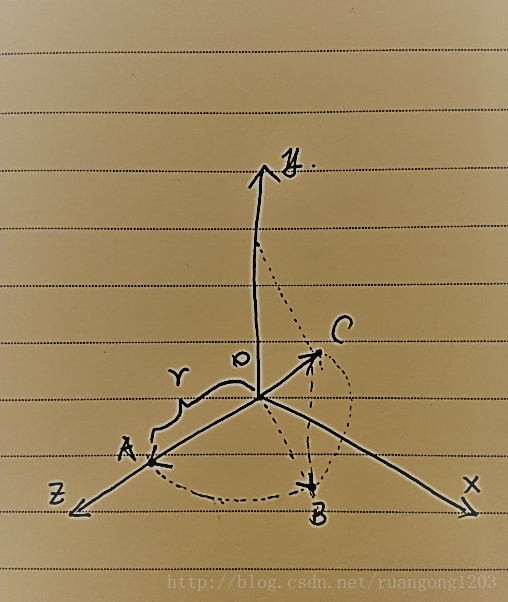 y.
C
O
r
A
Z
X
B
http://blog.csdn.net/ruangong1203